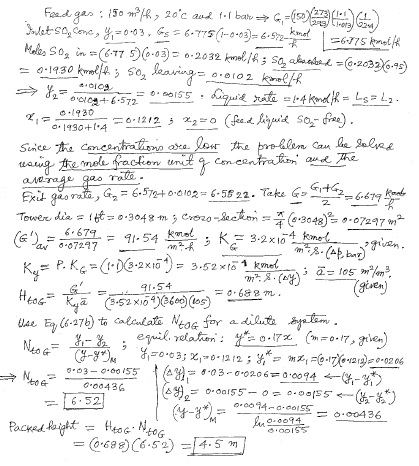 Feed gas : 150 m³/h, 20°C and 1.1 bar ⇒ G₁ = (150)(273/293)(1.1/1.013)(1/22.4)
= 6.775 kmol/h
Inlet SO₂ conc, y₁ = 0.03. Gs = 6.775(1-0.03) = 6.572 kmol/h
Moles SO₂ in = (6.775)(0.03) = 0.2032 kmol/h; SO₂ absorbed = (0.2032)(0.95)
= 0.1930 kmol/h; SO₂ leaving = 0.0102 kmol/h
⇒ y₂ = 0.0102/(0.0102+6.572) = 0.00155. Liquid rate = 1.4 kmol/h = Ls = L₂.
x₁ = 0.1930/(0.1930+1.4) = 0.1212 ; x₂ = 0 (feed liquid SO₂-free).
Since the concentrations are low the problem can be solved
using the mole fraction unit of concentration and the
average gas rate.
Exit gas rate, G₂ = 6.572+0.0102 = 6.5822. Take G = (G₁+G₂)/2 = 6.679 kmol/h
Tower dia = 1ft = 0.3048 m ; cross-section = π/4 (0.3048)² = 0.07297 m²
(G')av = 6.679/0.07297 = 91.54 kmol/m²·h ; K_G = 3.2×10⁻⁴ kmol/m²·s·(Δp, bar), given.
Ky = P. K_G = (1.1)(3.2×10⁻⁴) = 3.52×10⁻⁴ kmol/m²·s·(Δy) ; ā = 105 m²/m³ (given)
HtoG = G'/Kyā = 91.54/(3.52×10⁻⁴)(3600)(105) = 0.688 m.
Use Eq (6.27b) to calculate NtoG for a dilute system.
NtoG = (y₁-y₂)/(y-y*)M ; equil. relation: y* = 0.17x (m = 0.17, given)
y₁ = 0.03; x₁ = 0.1212; y₁* = mx₁ = (0.17)(0.1212) = 0.0206
⇒ NtoG = (0.03-0.00155)/0.00436 (Δy)₁ = 0.03-0.0206 = 0.0094 ← (y₁-y₁*)
(Δy)₂ = 0.00155-0 = 0.00155 ← (y₂-y₂*)
= 6.52 (y-y*)M = (0.0094-0.00155)/ln(0.0094/0.00155) = 0.00436
Packed height = HtoG · NtoG
= (0.688)(6.52) = 4.5 m